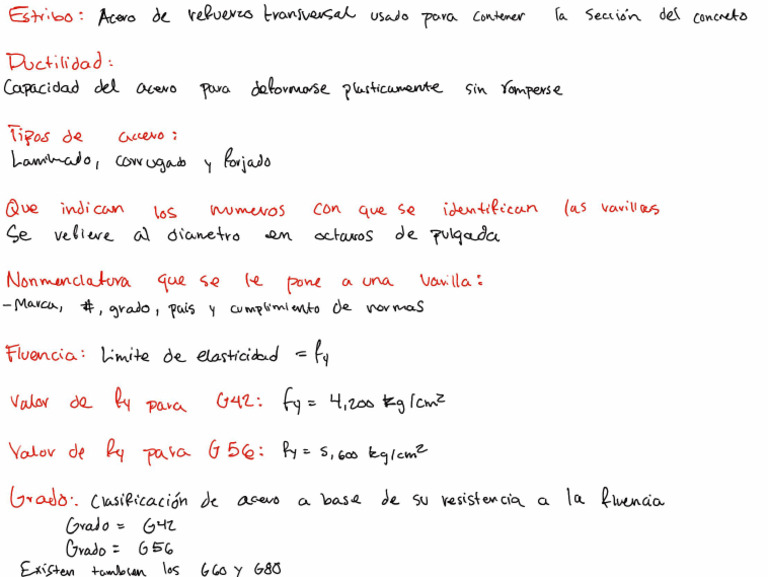 Estribo: Acero de refuerzo transversal usado para contener la sección del concreto
Ductilidad:
Capacidad del acero para deformarse plasticamente sin romperse
Tipos de acero:
Laminado, corrugado y forjado
Que indican los numeros con que se identifican las varillas
Se refiere al diametro en octavos de pulgada
Nonmenclatura que se le pone a una varilla:
- Marca, #, grado, pais y cumplimiento de normas
Fluencia: Limite de elasticidad = fy
Valor de fy para G42: fy = 4,200 kg/cm²
Valor de fy para G56: fy = 5,600 kg/cm²
Grado: Clasificación de acero a base de su resistencia a la fluencia
Grado = G42
Grado = G56
Existen tambien los G60 y G80